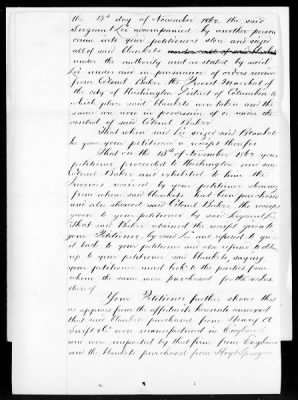 the 13th day of November 1862 the said
Sergeant Lee accompanied by another person
came into your petitioners store and seized
all of said Blankets
under the authority and as stated by said
Lee under and in pursuance of orders received
from Colonel Baker the Provost Marshal of
the city of Washington District of Columbia to
which place said Blankets were taken and the
same are now in possession of or under the
control of said Colonel Baker
That when said Lee seized said Blankets
he gave your petitioner a receipt therefor
That on the 15th of November 1862 your
petitioner proceeded to Washington and saw
Colonel Baker and exhibited to him the
Invoices received by your petitioner showing
from whom said Blankets had been purchased
and also showed said Colonel Baker the receipt
given to your petitioner by said Sergeant Lee
That said Baker retained the receipt given to
your Petitioner by said Lee and refused to give
it back to your petitioner and also refused to deliver
up to your petitioner said Blankets, saying
your petitioner must look to the parties from
whom the same were purchased for the value
thereof
Your Petitioner further shows that
as appears from the affidavits hereunto annexed
that said Blankets purchased from Henry A
Swift & Co were manufactured in England
and were imported by that firm from England
and the Blankets purchased from Hoyt Sprague